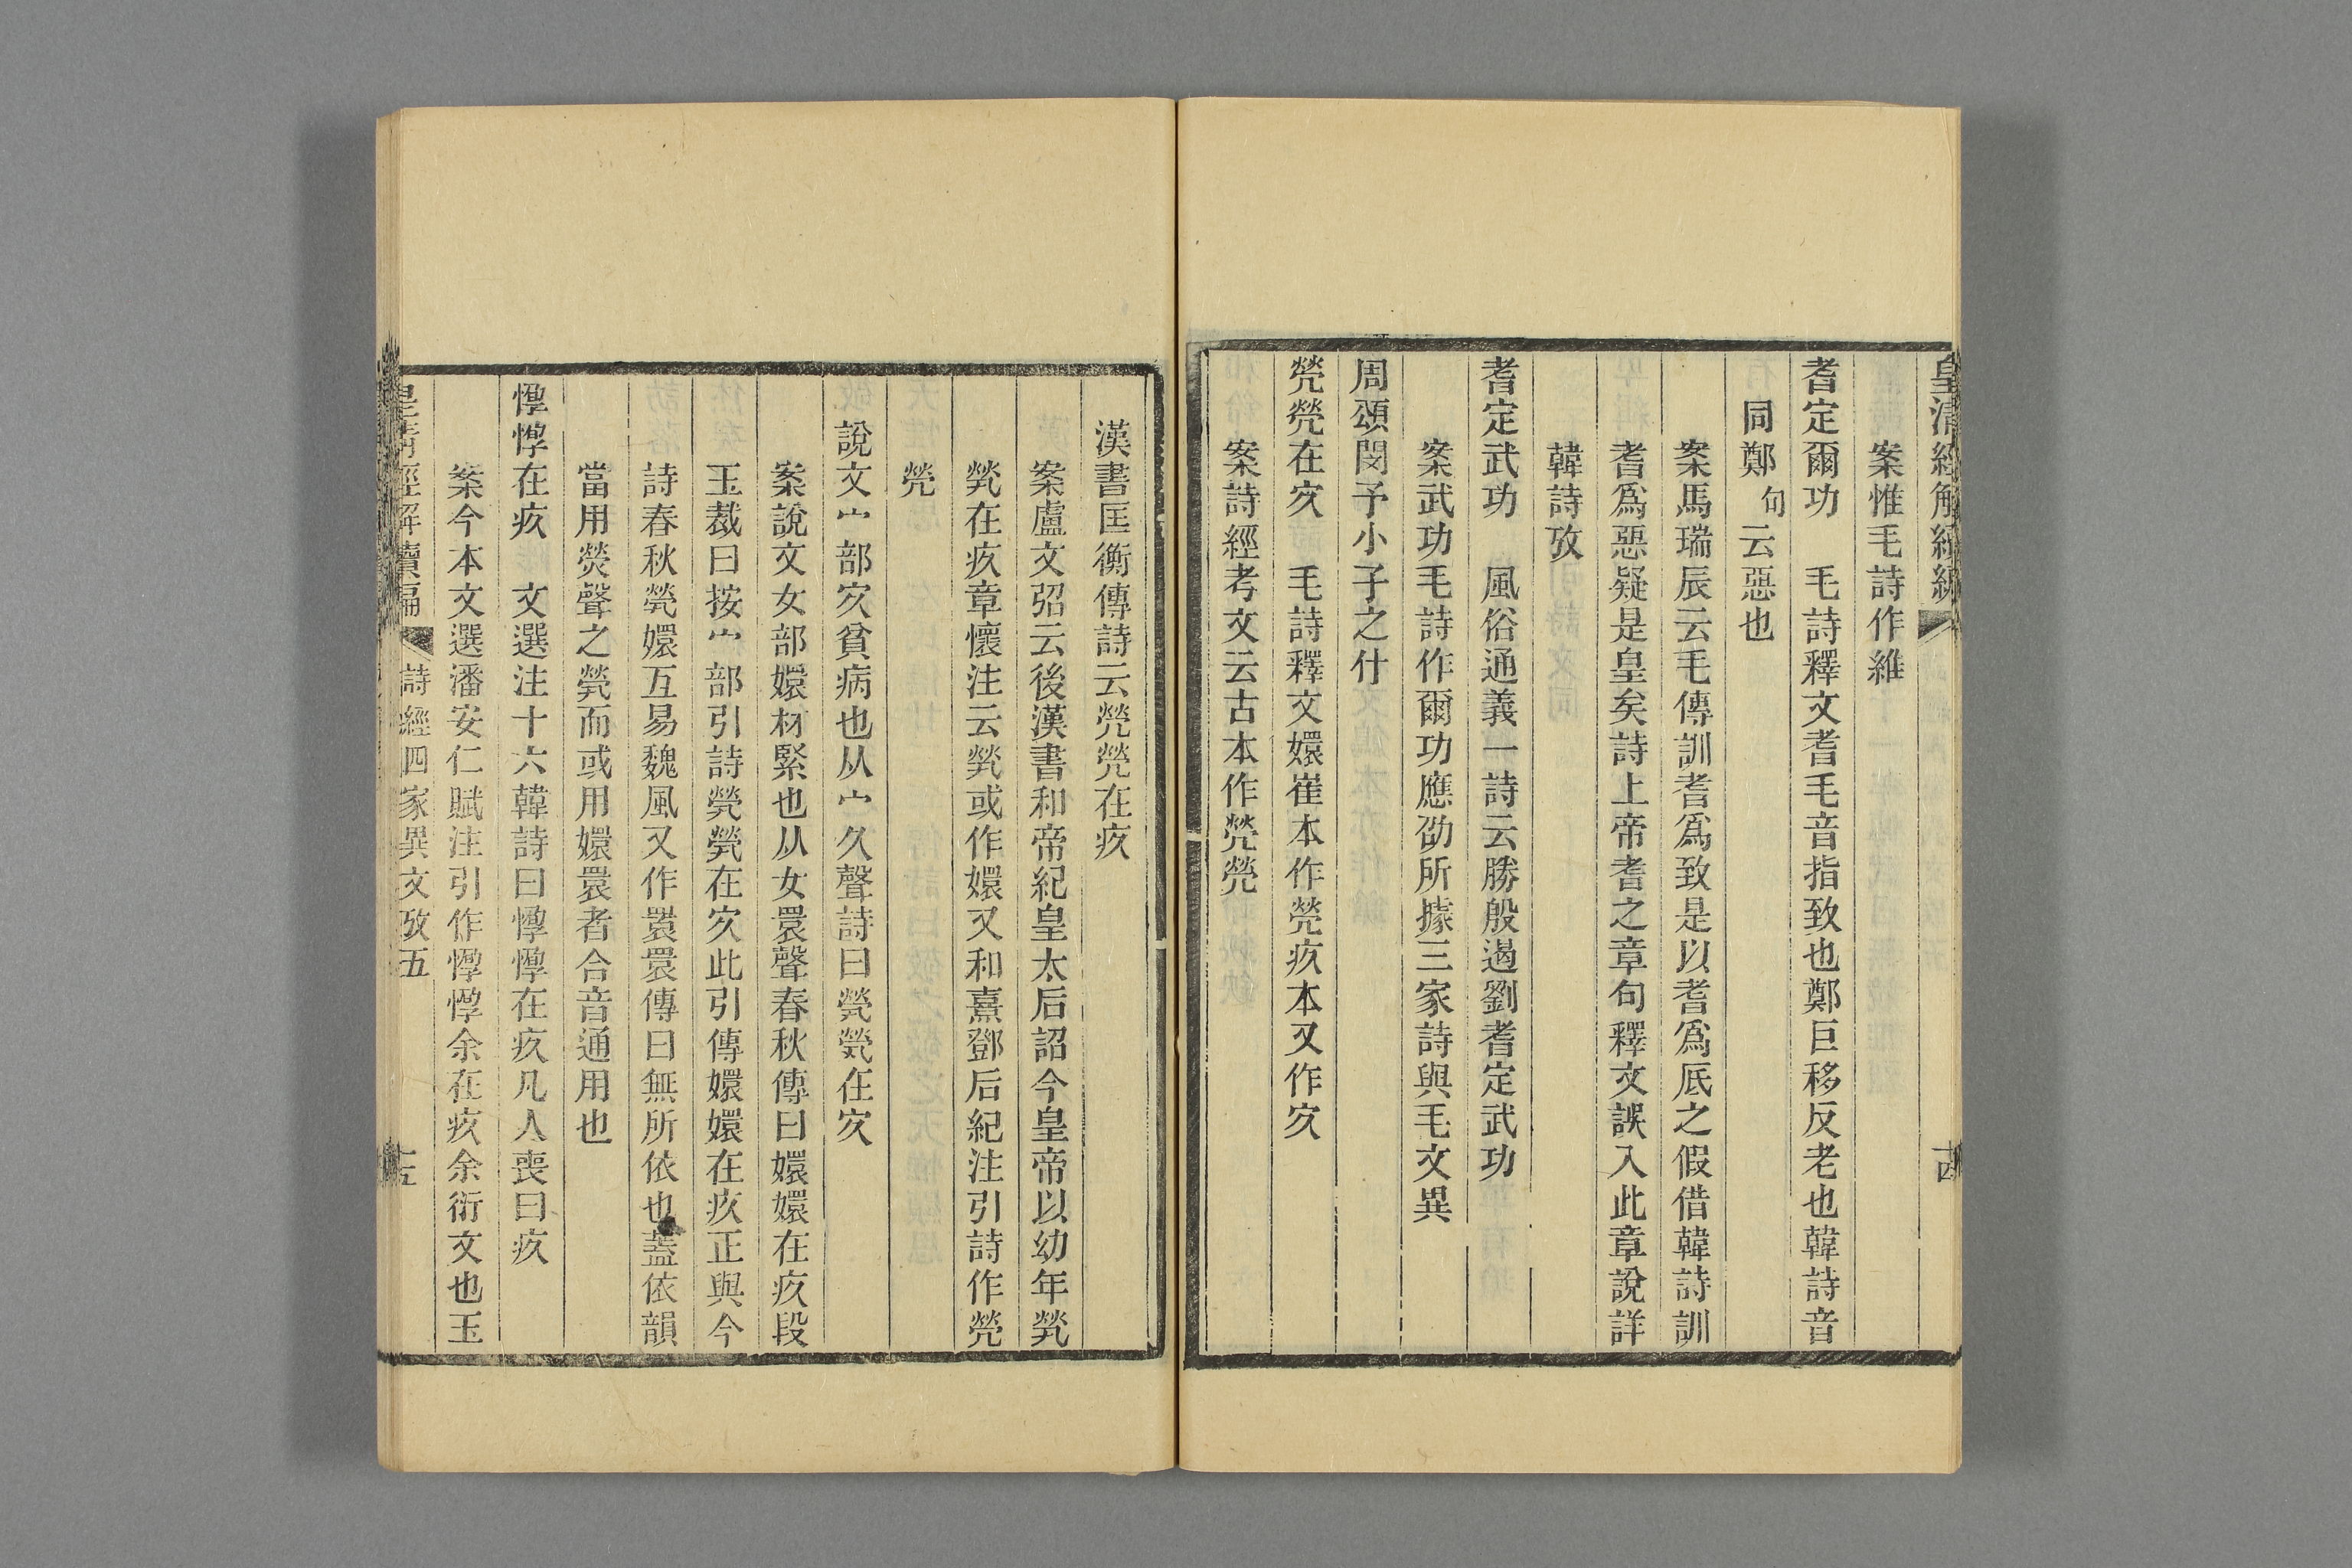 皇清經解續編
十四
案惟毛詩作維
耆定爾功　毛詩釋文耆毛音指致也鄭巨移反老也韓詩音
同鄭句云惡也
案馬瑞辰云毛傳訓耆爲致是以耆爲厎之假借韓詩訓
耆爲惡疑是皇矣詩上帝耆之章句釋文誤入此章說詳
韓詩攷
耆定武功　風俗通義一詩云勝殷遏劉耆定武功
案武功毛詩作爾功應劭所據三家詩與毛文異
周頌閔予小子之什
煢煢在㝌　毛詩釋文嬛崔本作煢疚本又作㝌
案詩經考文云古本作煢煢
漢書匡衡傳詩云煢煢在疚
案盧文弨云後漢書和帝紀皇太后詔今皇帝以幼年煢
煢在疚章懷注云煢或作嬛又和熹鄧后紀注引詩作煢
煢
說文宀部㝌貧病也从宀久聲詩曰煢煢在㝌
案說文女部嬛材緊也从女睘聲春秋傳曰嬛嬛在疚段
玉裁曰按宀部引詩煢煢在㝌此引傳嬛嬛在疚正與今
詩春秋煢嬛互易魏風又作睘睘傳曰無所依也蓋依韻
當用熒聲之煢而或用嬛睘者合音通用也
惸惸在疚　文選注十六韓詩曰惸惸在疚凡人喪曰疚
案今本文選潘安仁賦注引作惸惸余在疚余衍文也玉
皇清經解續編
詩經四家異文攷五
十五